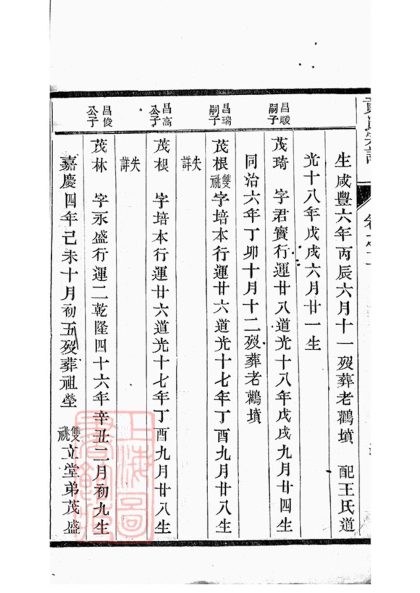 生咸豐六年丙辰六月十一歿葬老鸛墳 配王氏道
光十八年戊戌六月廿一生
昌畯嗣子
茂琦 字君實行運廿八道光十八年戊戌九月廿四生
同治六年丁卯十月十二歿葬老鸛墳
昌瑞嗣子
茂根 雙祧 字培本行運廿六道光十七年丁酉九月廿八生
失詳
昌高公子
茂根 字培本行運廿六道光十七年丁酉九月廿八生
失詳
昌俊公子
茂林 字永盛行運二乾隆四十六年辛丑二月初九生
嘉慶四年己未十月初五歿葬祖塋 雙祧 立堂弟茂盛